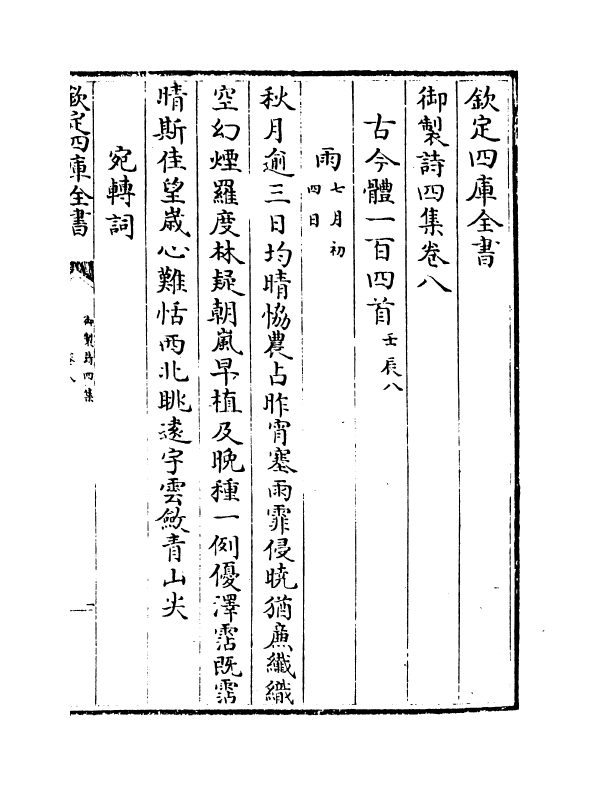 欽定四庫全書
御製詩四集卷八
古今體一百四首壬辰八
雨七月初四日
秋月逾三日均晴恊農占昨宵塞雨霏侵曉猶廉纖織
空幻煙羅度林疑朝嵐早植及晚種一例優澤霑既霑
晴斯佳望歲心難恬西北眺遠宇雲斂青山尖
宛轉詞
欽定四庫全書
御製詩四集
卷八
一